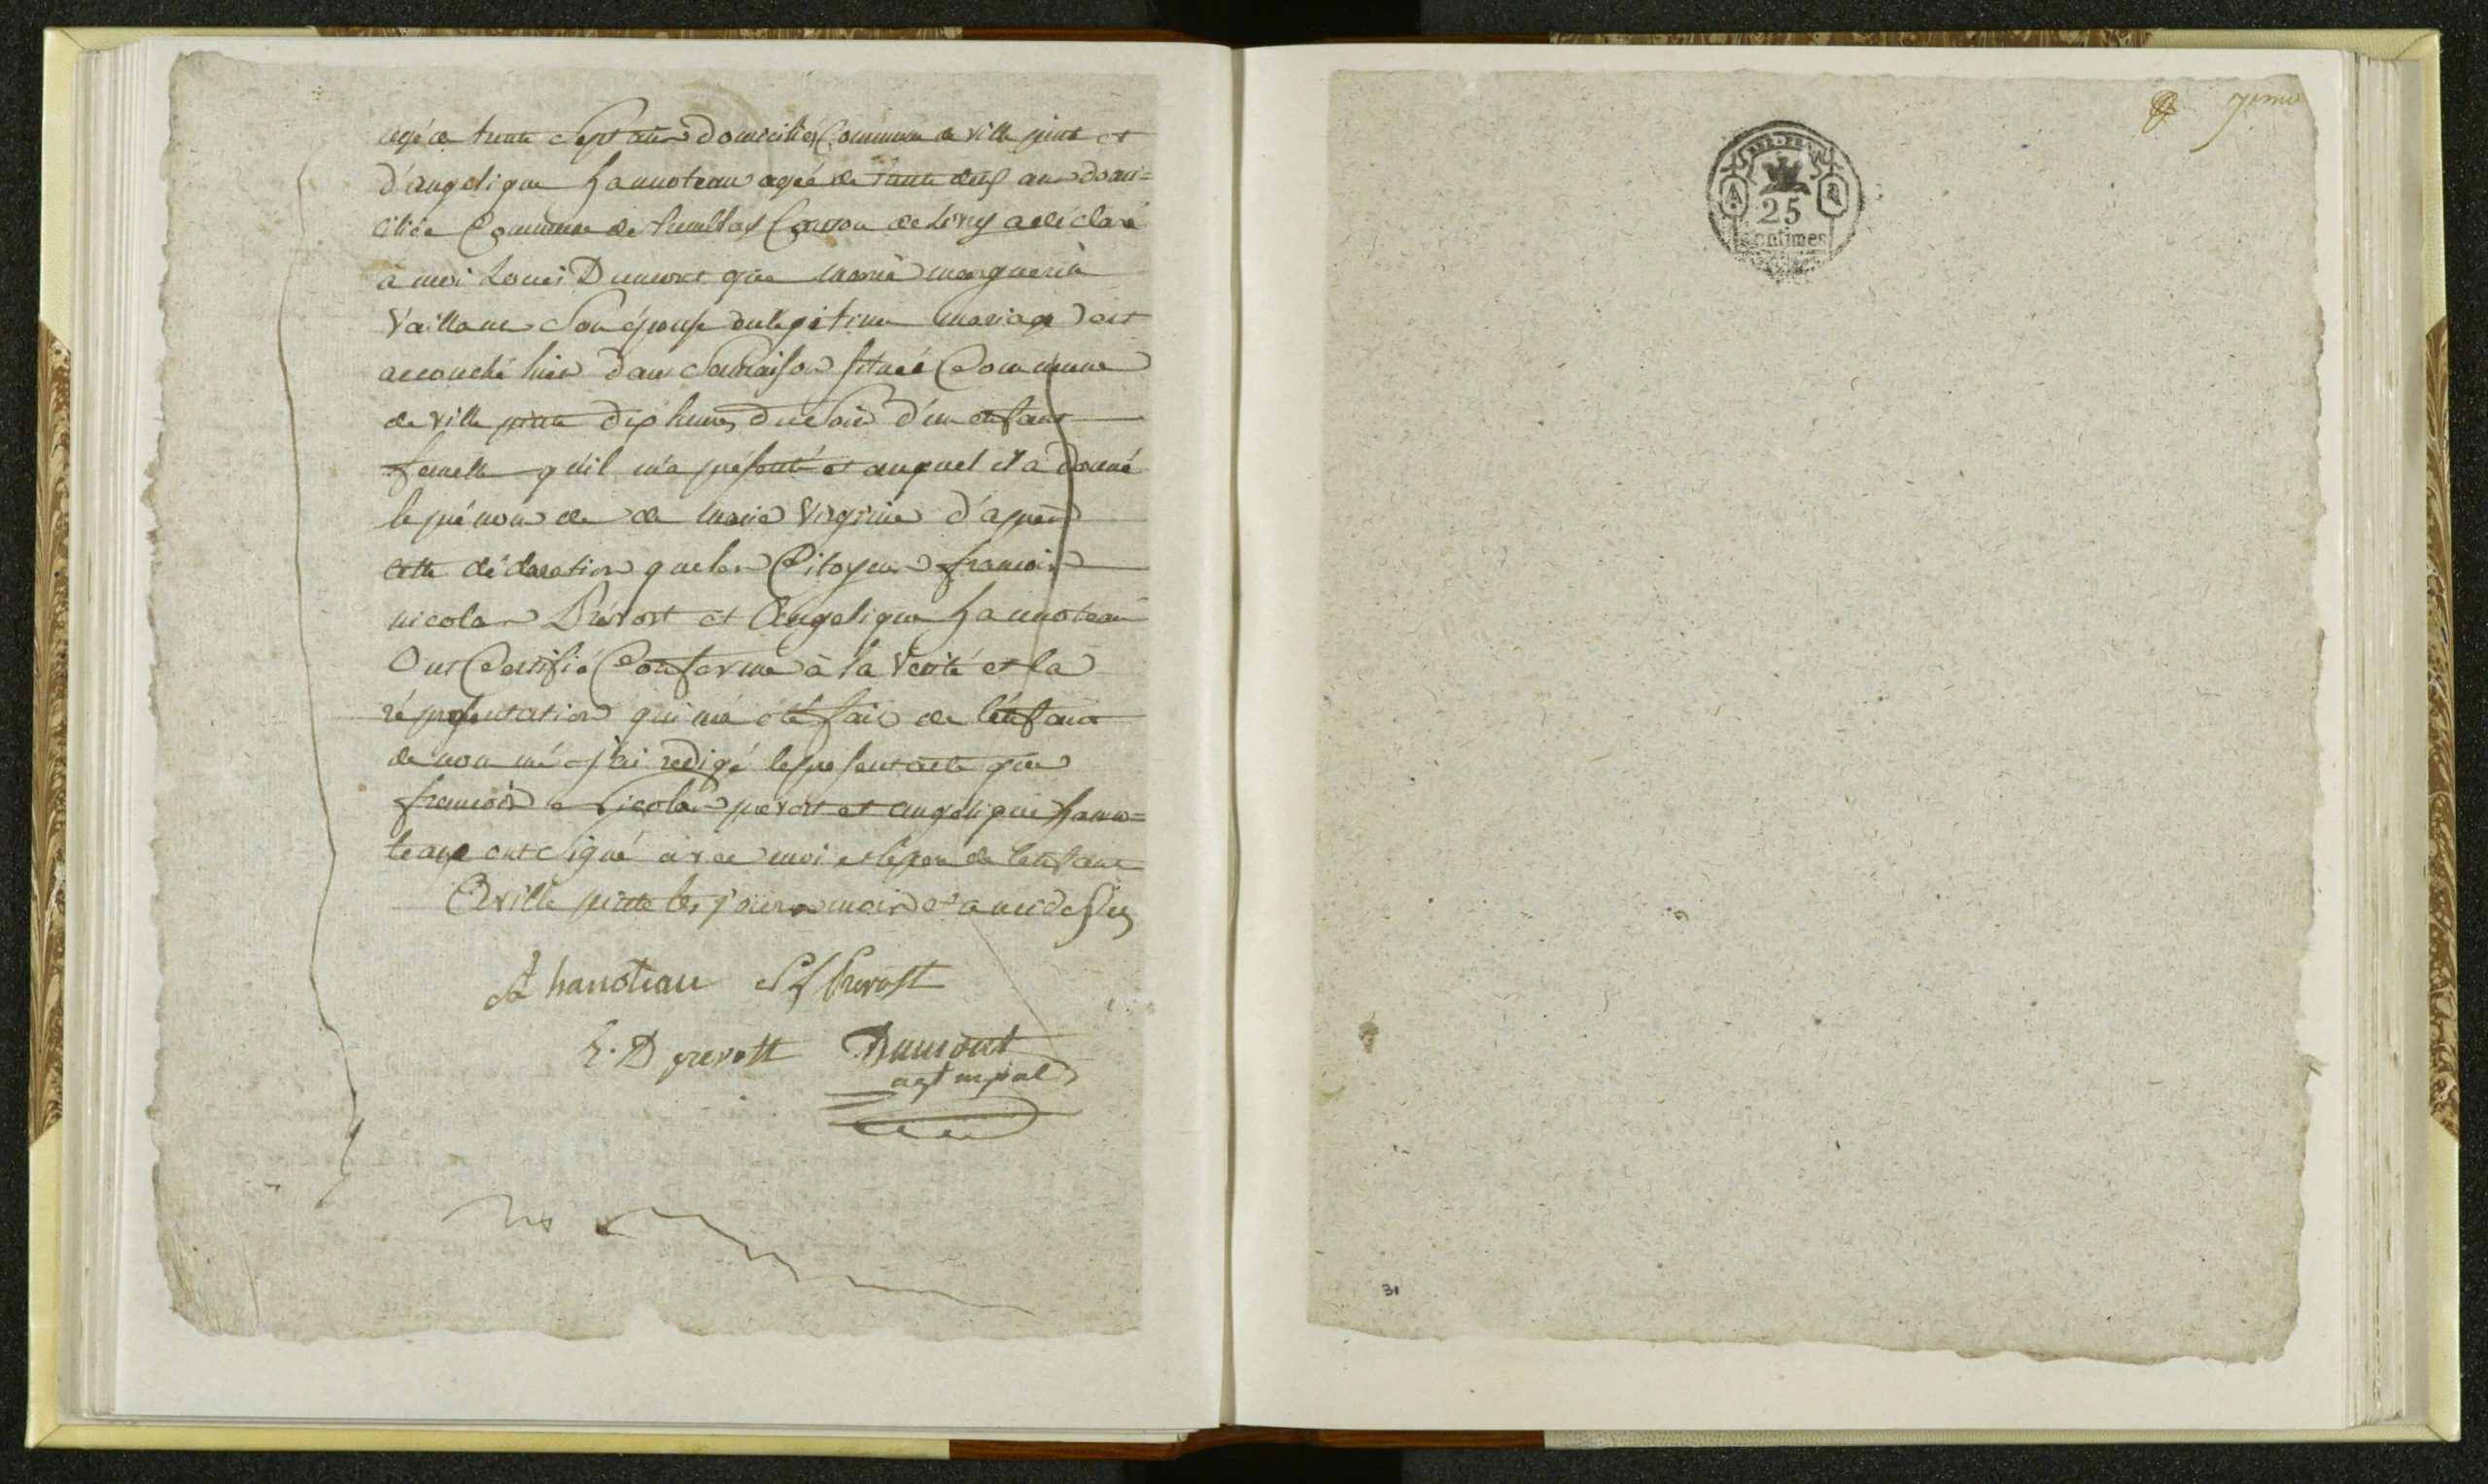 agé de trente Sept ans domicilié Commune de ville pinte et
d'angelique hannoteau agée de trente deux ans domi=
ciliée Commune de tremblay Canton de Livry a déclaré
à moi Louis Dumont que marie marguerite
Vaillant Son épouse en légitime mariage est
accouché hier dans Sa maison située Commune
de ville pinte dix heures du Soir d'un enfant
femelle qu'il m'a présenté et auquel il a donné
le prénom de de marie Virginie d'après
cette déclaration que les Citoyens francois
nicolas Prévost et Angelique hannoteau
Ont Certifié Conforme à la Vérité et la
réprésentation qui m'a été fait de l'enfant
de nommé j'ai redigé le présent acte que
francois Nicolas prevost et angelique hanno=
teau ont Signé avec moi et le père de l'enfant
A ville pinte les jour mois et an ci dessus
A hanoteau Prevost
L. D prevost Dumont
agt mpal
7eme
REP. FRA
25
centimes
31